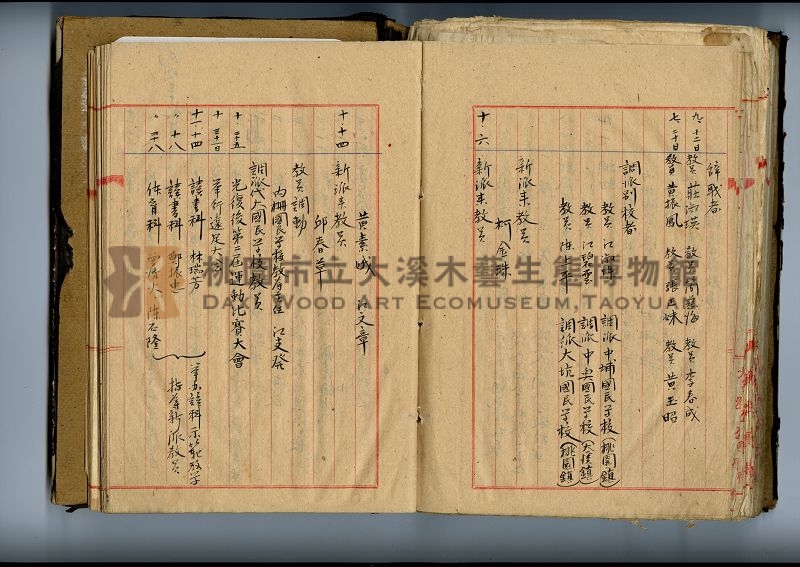 辞職者
九、十二日 教員 莊淑瑛 教員 李春成
七、二十日 教員 黃振鳳 教員 黃玉昭
調派別校者
教員 江淑珠 調派中埔國民学校(桃園鎮)
教員 江碧雲 調派中興國民学校(大溪鎮)
教員 陳 調派大坑國民学校(桃園鎮)
新派来教員
柯金珠
十、六 新派来教員
黃素 江文章
十、十四 新派来教員
邱春草
教員調動
内柵國民学校教員 江支發
調派大國民学校教員
十 二十五 光復後第三屆運動比賽大會
十 三十一日 举行遠足大會
十一、十四 讀書科 林瑞芳
〃 十八 讀書科 鄭振忠
〃 二十八 体育科 陳石隆
諸科示範教学
指導新派教員
桃園市立大溪木藝生態博物館
DAXI WOOD ART ECOMUSEUM, TAOYUAN